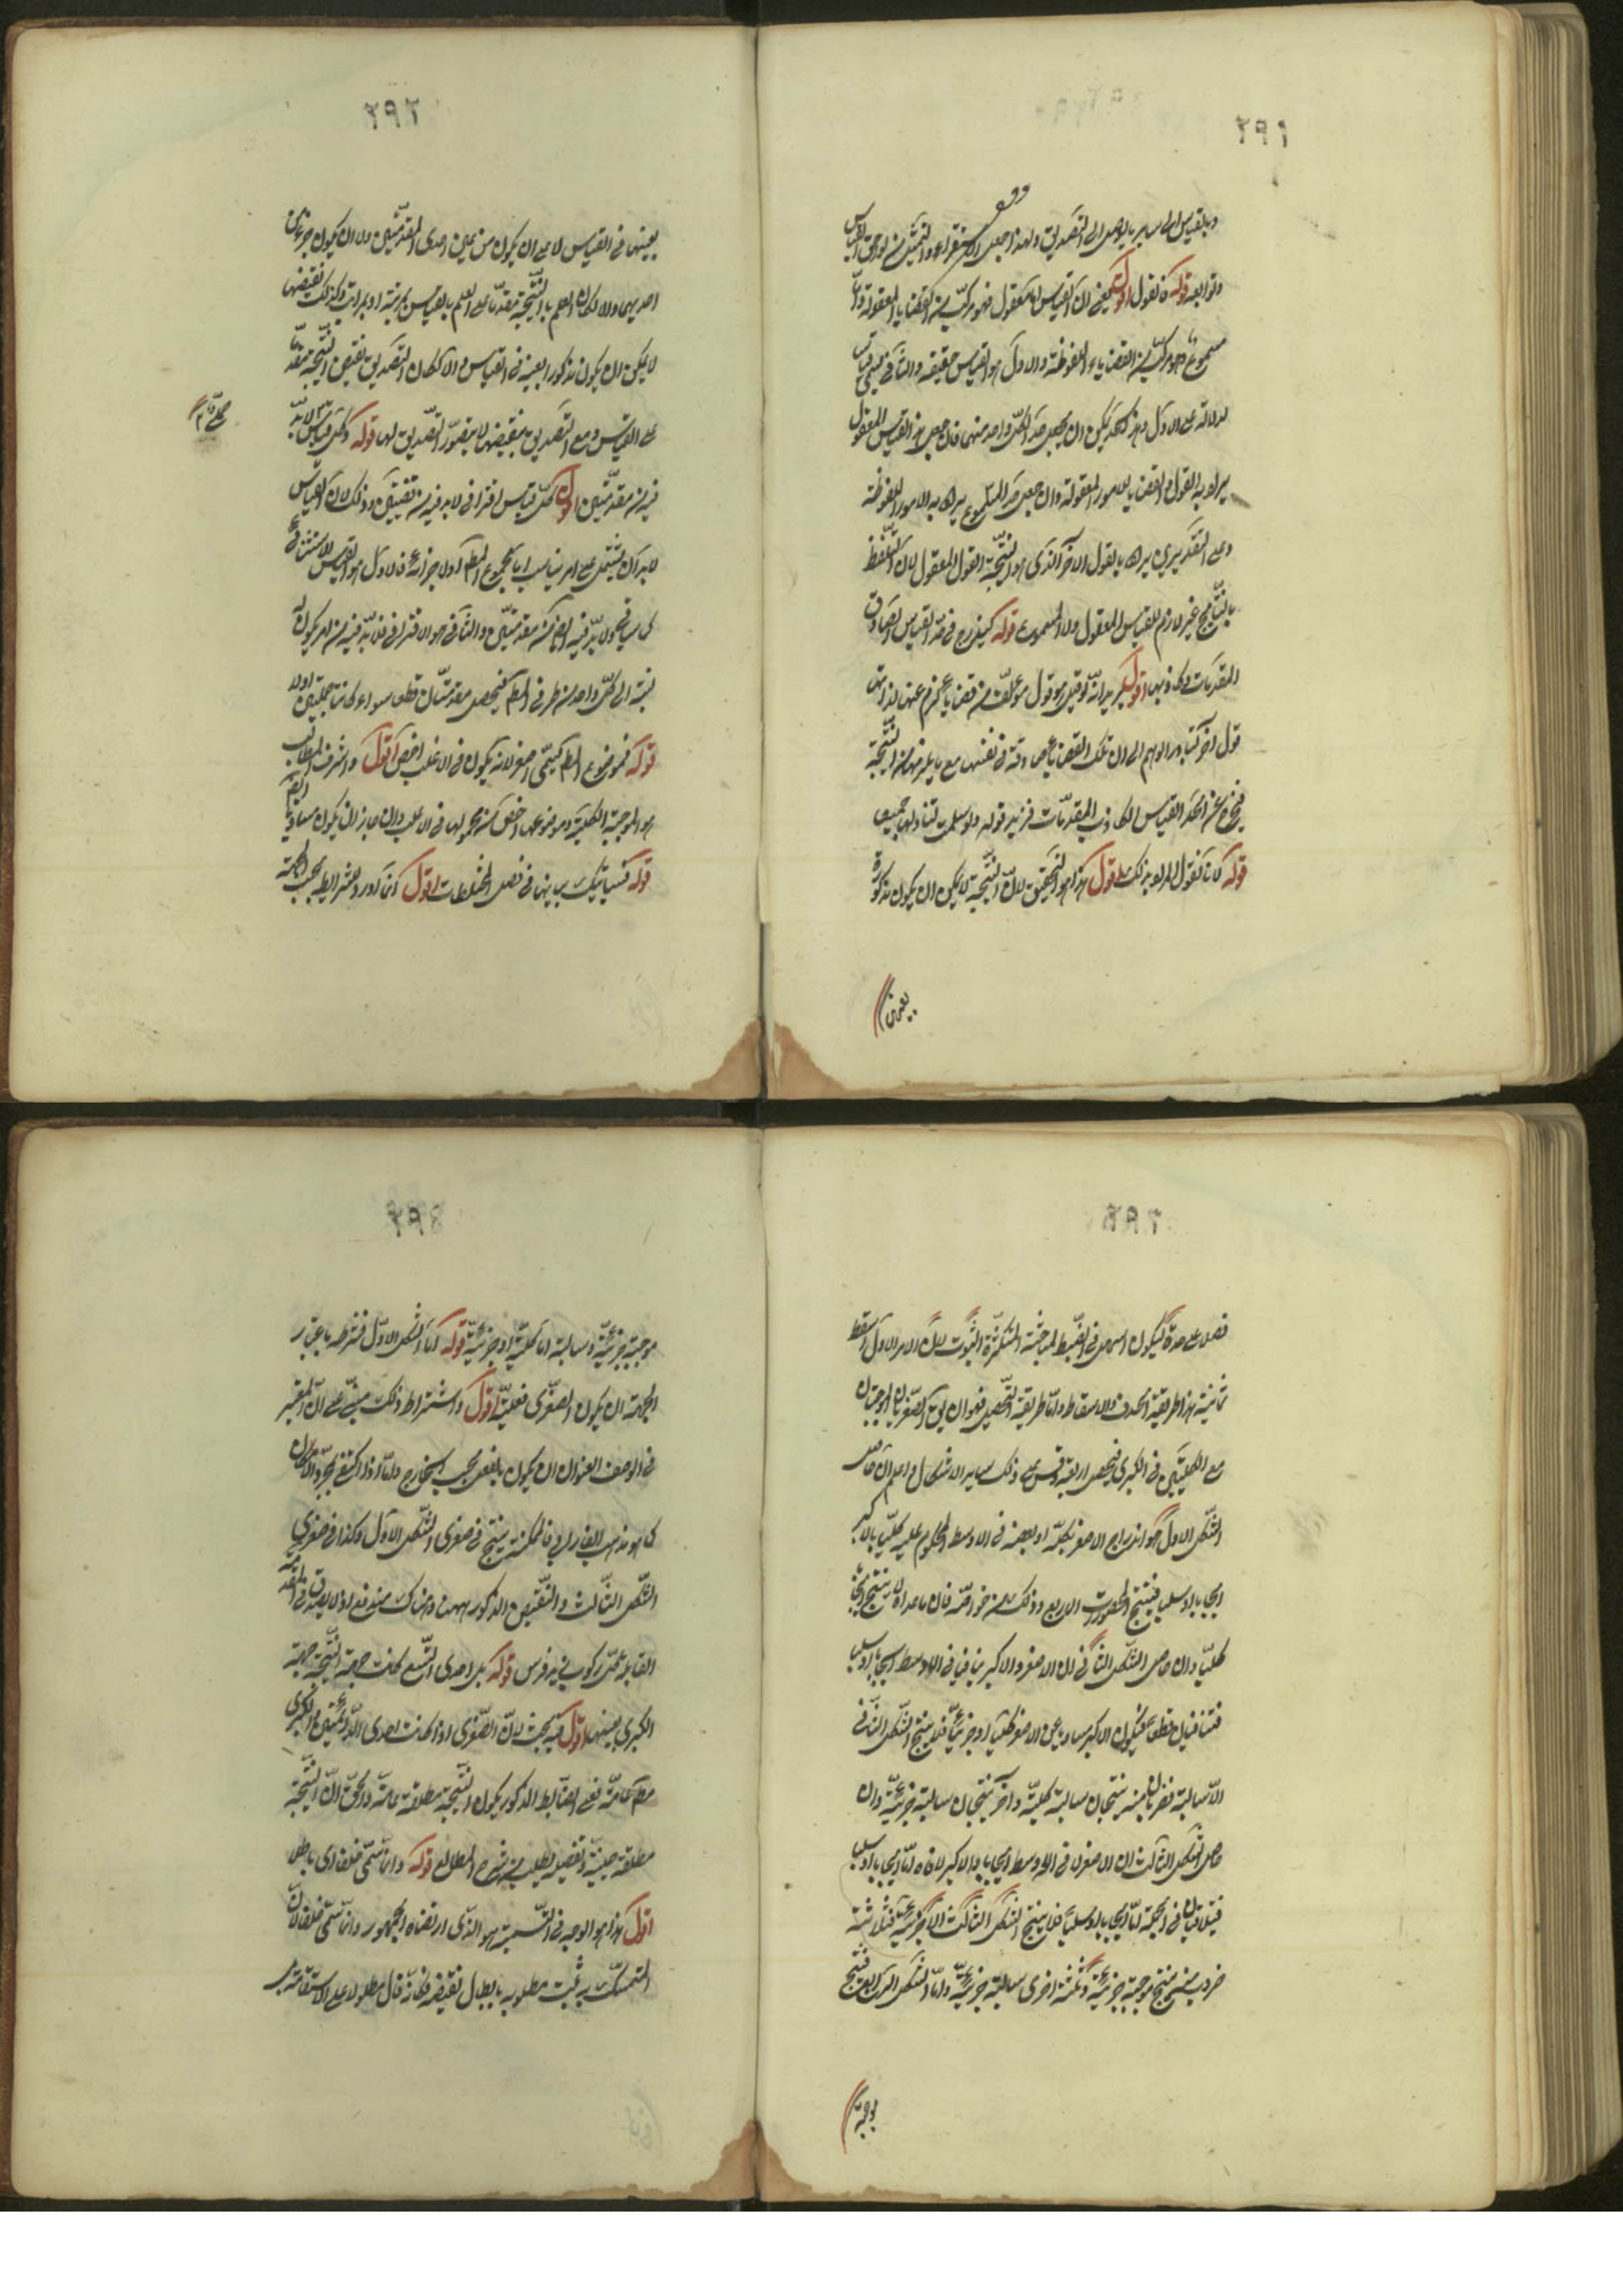 ٢٩١
وبالقياس الى ساير ما يوصل الى التصديق ولهذا جعل الاستقراء والتمثيل من لواحق القياس
وتوابعه قوله فالقول اقول يعني ان القياس اما معقول فهو مركب من القضايا المعقولة واما
مسموع وهو مركب من القضايا الملفوظة والاول هو القياس حقيقة والثاني يسمى قياسا
لدلالته على الاول وهذا الحد يمكن ان يجعل حدا لكل واحد منهما فان جعل حد القياس المعقول
يراد بالقول والقضايا الامور المعقولة وان جعل حد المسموع يراد به الامور الملفوظة
وعلى التقديرين يراد بالقول الآخر الذي هو النتيجة القول المعقول لان التلفظ
بالنتايج غير لازم للقياس المعقول ولا المسموع قوله ليندرج في حد القياس الصادق
المقدمات وكاذبها اقول يريد انه لو قيل هو قول مؤلف من قضايا يلزم عنها لذاتها
قول آخر لتبادر الوهم الى ان تلك القضايا صادقة في نفسها مع ما يلزمها من النتيجة
فيخرج عن الحد القياس الكاذب المقدمات فزيد قوله ولو سلمت لتناولهما جميعا
قوله لانا نقول المراد بذلك اقول هذا هو التحقيق لان النتيجة لا يمكن ان يكون مذكورة
بعينها
٢٩٢
بعينها في القياس لا على ان يكون من عين احدى المقدمتين ولا ان يكون جزءا من
احديهما والا لكان العلم بالنتيجة مقدما على العلم بالقياس بمرتبة او بمراتب وكذلك نقيضها
لا يمكن ان يكون مذكورا بعينه في القياس والا لكان التصديق بنقيض النتيجة مقدما
على القياس ومع التصديق بنقيضها لا يتصور التصديق بها قوله وكل قياس لا بد
فيه من مقدمتين اقول كل قياس اقتراني لا بد فيه من قضيتين وذلك لان القياس
لا بد ان يشتمل على امر يناسب اما مجموع المط او لاجزائه فالاول هو القياس الاستثنائي
كما سيأتي ولا بد فيه ايضا من مقدمتين والثاني هو الاقتراني فلا بد فيه من امر يكون له
نسبة الى كل واحد من طرفي المط فيحصل مقدمتان قطعا سواء كانتا حمليتين او لا
قوله فموضوع المط يسمى اصغر لانه يكون في الاغلب اخص اقول واشرف المطالب
هو الموجبة الكلية وموضوعها اخص من محمولها في الاغلب وان جاز ان يكون مساويا ايضا
قوله فسيأتيك بيانها في فصل المختلطات اقول انما اورد الشرايط بحسب الجهة
٢٩٣
فصلا على حدة ليكون اسهل في الضبط لمباحثه المتكثرة الثبوت لان الامر الاول اسقط
ثمانية هذا طريقة الحذف والاسقاط واما طريقة التحصيل فهو ان يق الصغريان الموجبتان
مع الكليتين في الكبرى فيحصل اربعة وقس على ذلك ساير الاشكال واعلم ان حاصل
الشكل الاول هو اندراج الاصغر بكله او ببعضه في الاوسط المحكوم عليه كليا بالاكبر
ايجابا او سلبا فينتج المحصورات الاربع وذلك من خواصه فان ما عداه لا ينتج ايجابا
كليا وان حاصل الشكل الثاني ان الاصغر والاكبر يتنافيان في الاوسط ايجابا وسلبا
فتنافيان قطعا فيكون الاكبر مسلوبا عن الاصغر كليا او جزئيا فلا ينتج الشكل الثاني
الا سالبة فضربان منه ينتجان سالبة كلية وآخران ينتجان سالبة جزئية وان
حاصل الشكل الثالث ان الاصغر لاقى الاوسط ايجابا والاكبر لاقاه اما ايجابا او سلبا
فيتلاقيان في الجملة اما ايجابا او سلبا فلا ينتج الشكل الثالث الا جزئية فثلاثة
ضروب منه ينتج موجبة جزئية وثلثة اخرى سالبة جزئية واما الشكل الرابع فينتج
موجبة
موجبة جزئية وسالبة اما كلية او جزئية قوله اما الشكل الاول فشرطه باعتبار
الجهة ان يكون الصغرى فعلية اقول واشتراط ذلك مبني على ان المعتبر
في الوصف العنواني ان يكون بالفعل بحسب الخارج واما اذا اكتفي بمجرد الامكان
كما هو مذهب الفارابي فالممكنة ينتج في صغرى الشكل الاول وكذا في صغرى
الشكل الثالث والنقيض المذكور ههنا وهناك مندفع اذ لا يصدق في المقدمة
القائلة كل مركوب زيد فرس قوله بل احدى التسع كانت جهة النتيجة جهة
الكبرى بعينها اقول فيه بحث لان الصغرى اذا كانت احدى الدائمتين والكبرى
مط عامة فعلى الضابط المذكور يكون النتيجة مطلقة عامة والحق ان النتيجة
مطلقة حينية وتفصيله يطلب من شرح المطالع قوله وانما سمي خلفا اي باطلا
اقول هذا هو الوجه في التسمية هو الذي ارتضاه الجمهور وانما سمي خلفا لان
المتمسك به يثبت مطلوبه بابطال نقيضه فكانه قال مطلوبه لا على الاستقامة بل